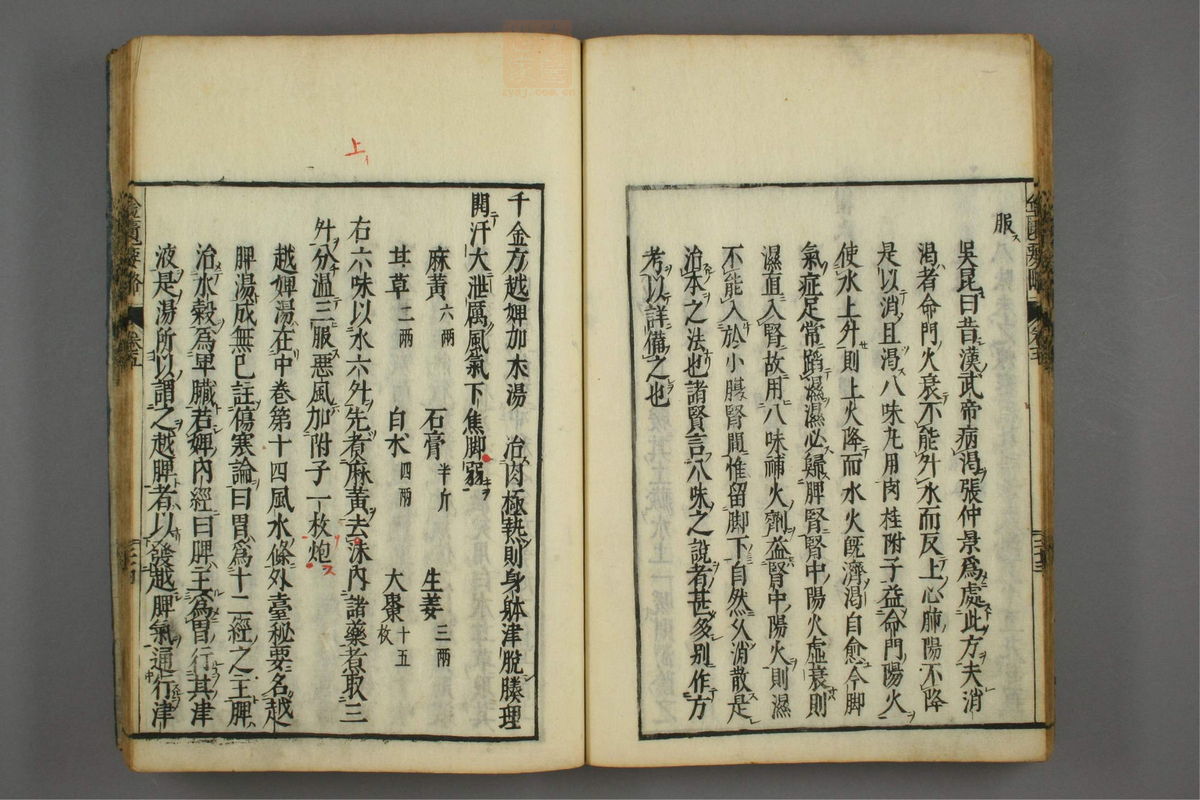 服ス
吳昆曰昔漢武帝病渴張仲景爲處此方夫消
渴者命門火衰不能升水而反上心肺陽不降
是以消且渴八味丸用肉桂附子益命門陽火
使水上升則上火降而水火既濟渴自愈今脚
氣症足常蹈濕濕必歸脾腎腎中陽火虛衰則
濕直入腎故用八味補火劑益腎中陽火則濕
不能入於小腸腎間惟留脚下自然久消散是
治本之法也諸賢言八味之說者甚多別作方
考以詳備之也
千金方越婢加朮湯 治肉極熱則身躰津脫腠理
開汗大泄厲風氣下焦脚弱
麻黃六兩 石膏半斤 生姜三兩
甘草二兩 白朮四兩 大棗十五枚
右六味以水六升先煮麻黃去沫內諸藥煮取三
升分溫三服惡風加附子一枚炮
越婢湯在中卷第十四風水條外臺秘要名越
脾湯成無已註傷寒論曰胃爲十二經之主脾
治水穀爲卑臟若婢內經曰脾主爲胃行其津
液是湯所以謂之越脾者以發越脾氣通行津
金匱要略 卷五
上